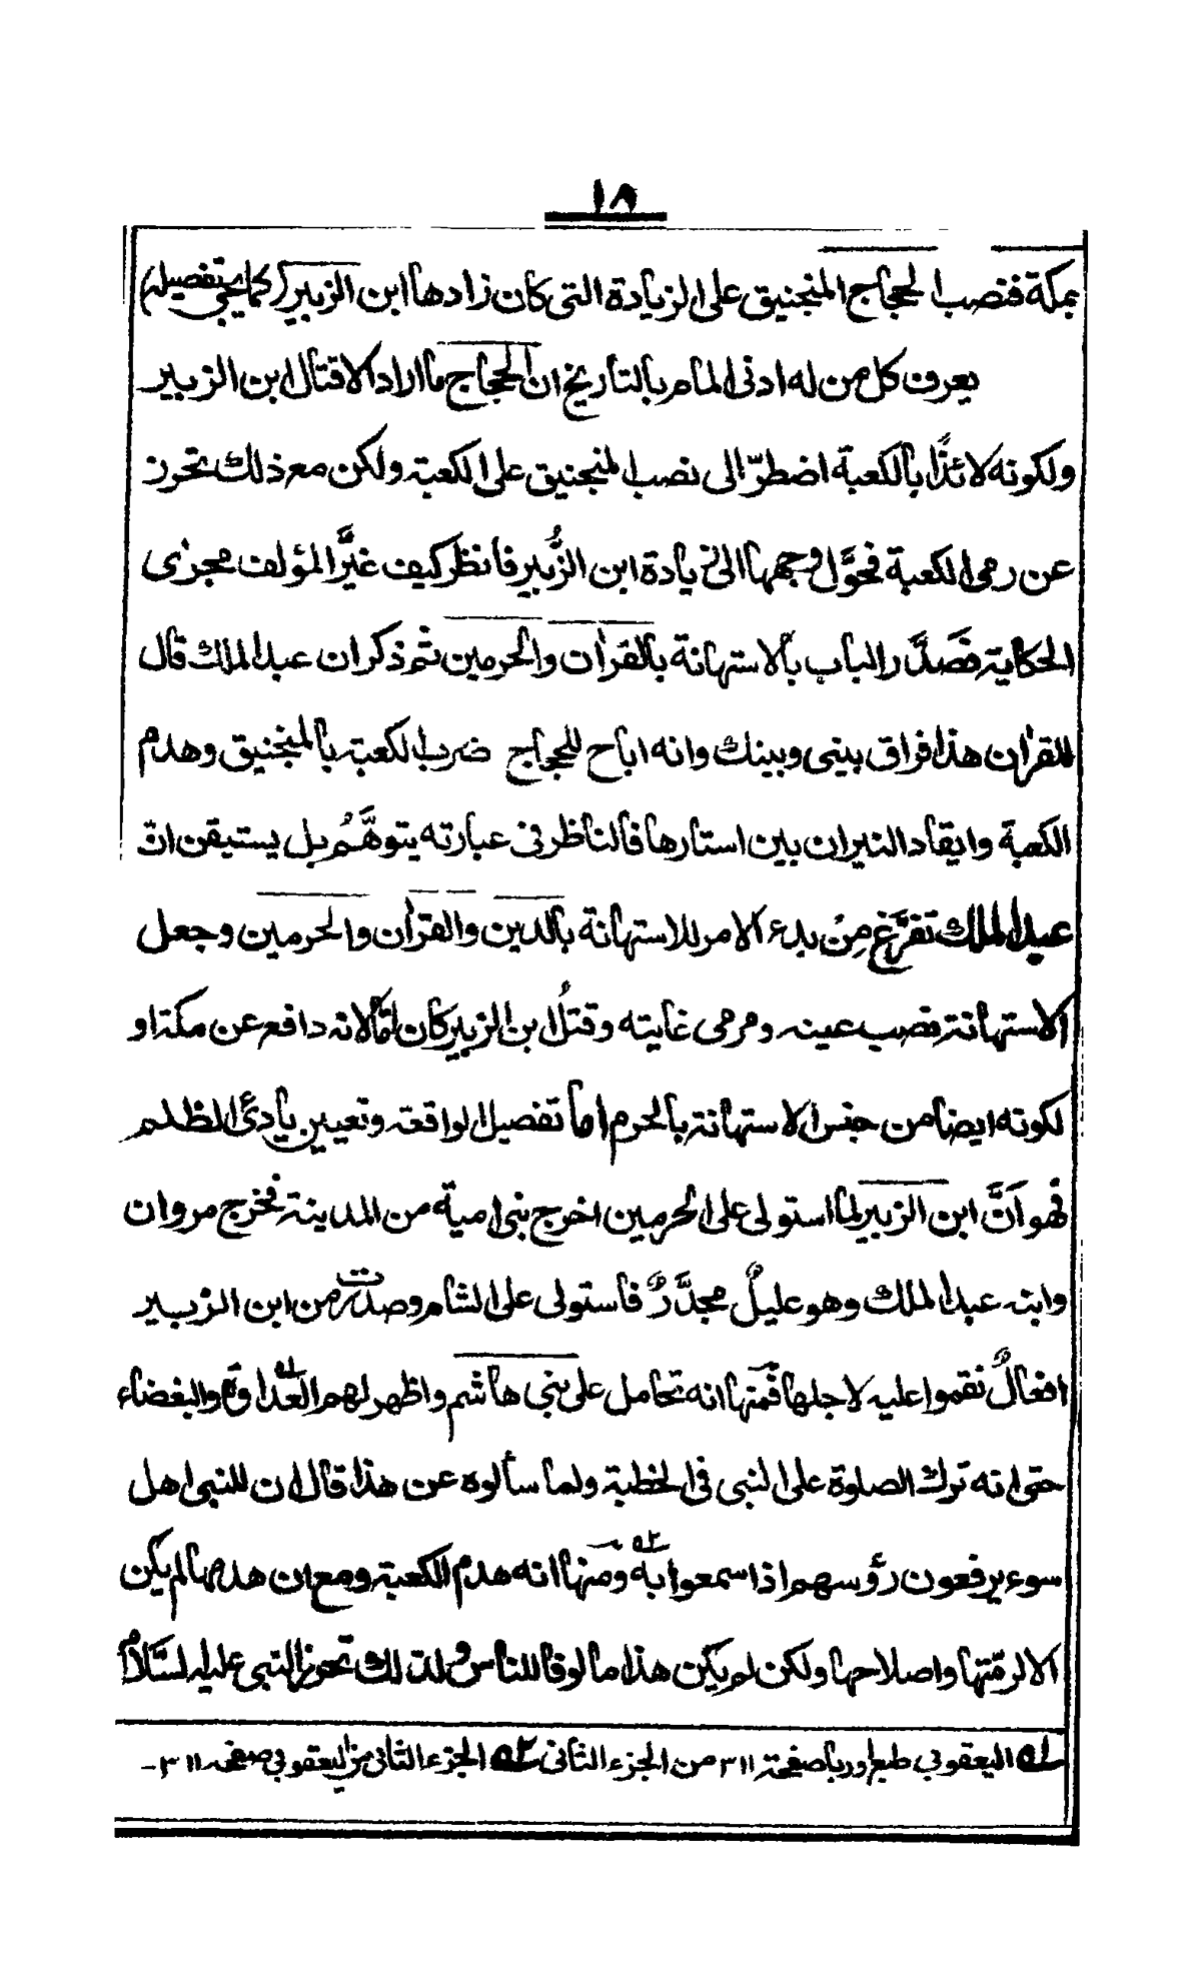 ١٨
بمكة فنصب الحجاج المنجنيق على الزيادة التى كان زادها ابن الزبير (كما يجئ تفصيله)
يعرف كل من له ادنى المام بالتاريخ ان الحجاج ما اراد الا قتال ابن الزبير
ولكونه لائذًا بالكعبة اضطرّ الى نصب المنجنيق على الكعبة ولكن مع ذلك تحرز
عن رمى الكعبة فحوَّل وجهها الى زيادة ابن الزُّبير فانظر كيف غيَّر المؤلف مجرى
الحكاية فصَدَّر الباب بالاستهانة بالقراٰن والحرمين ثم ذكر ان عبد الملك قال
للقراٰن هذا فراق بينى وبينك وانه اباح للحجاج ضرب الكعبة بالمنجنيق وهدم
الكعبة وايقاد النيران بين استارها فالناظر فى عبارته يتوهَّمُ بل يستيقن انّ
عبد الملك تفرَّغ مِنْ بدء الامر للاستهانة بالدين والقراٰن والحرمين وجعل
الاستهانة نصب عينه ومرمى غايته وقتلُ ابن الزبير كان امّا لانه دافع عن مكة او
لكونه ايضا من جنس الاستهانة بالحرم اما تفصيل الواقعة وتعيين بادئ الظلم
فهو اَنَّ ابن الزبير لما استولى على الحرمين اخرج بنى امية من المدينة فخرج مروان
وابنه عبد الملك وهو عليلٌ مجدَّرٌ فاستولى على الشام وصدرت من ابن الزبير
افعالٌ نقموا عليه لاجلها فمنها انه تحامل على بنى هاشم واظهر لهم العداوة والبغضاء
حتى انه ترك الصلوة على النبى فى الخطبة ولما سألوه عن هذا قال ان للنبى اهل
سوء يرفعون رؤسهم اذا سمعوا به ومنها انه هدم الكعبة ومع ان هدمها لم يكن
الا لرمّتها واصلاحها ولكن لم يكن هذا مالوفا للناس ولذلك تحرز النبى عليه السَّلام
له١ اليعقوبى طبع اوربا صفحة ٣١١ من الجزء الثانى له٢ الجزء الثانى من اليعقوبى صفحه ٣١١ -